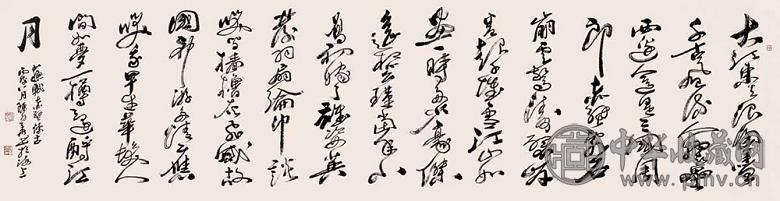 大江東去浪淘盡
千古風流人物故壘
西邊人道是三國周
郎赤壁亂石
崩雲驚濤裂岸
卷起千堆雪江山如
畫一時多少豪傑
遙想公瑾當年小
喬初嫁了雄姿英
發羽扇綸巾談
笑間檣櫓灰飛煙滅故
國神遊多情應
笑我早生華髮人
間如夢一樽還酹江
月
蘇軾赤壁懷古
八月
中华收藏网